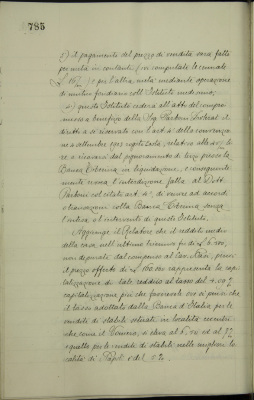 785
c) il pagamento del prezzo di vendita sarà fatto
per metà in contanti (in computate le cennate
£ 1672) e per l'altra metà mediante operazione
di mutuo fondiario coll'Istituto medesimo;
d) questo Istituto cederà all'atto del compro
messo a beneficio della Sig. Pacloni il
diritto a sé riservato con l'art. 2 della convenzione
10 settembre 1903 registrata, relativo alle
re a ricavarsi dal pignoramento di terzi presso la
Banca Tiberina in liquidazione, e conseguente
mente revoca l'interdizione fatta al Dott.
Pacloni col citato art. 2° di venire ad accordi
e transazioni colla Banca Tiberina senza
l'intesa e l'intervento di questo Istituto.
Aggiunge il Relatore che il reddito medio
della casa nell'ultimo triennio fu di £ 6.500,
non depurato dal compenso al Cav. Nasi, quindi
il prezzo offerto di £ 160.000 rappresenta la capi
talizzazione di tale reddito al tasso del 4.00%
capitalizzazione più che favorevole ove si pensi che
il tasso adottato dalla Banca d'Italia per le
vendite di stabili situati in località eccentri
che come il Vomero, si eleva al 6,50 ed al 7%
e quello per le vendite di stabili nelle migliori lo
calità di Napoli è del 5%.